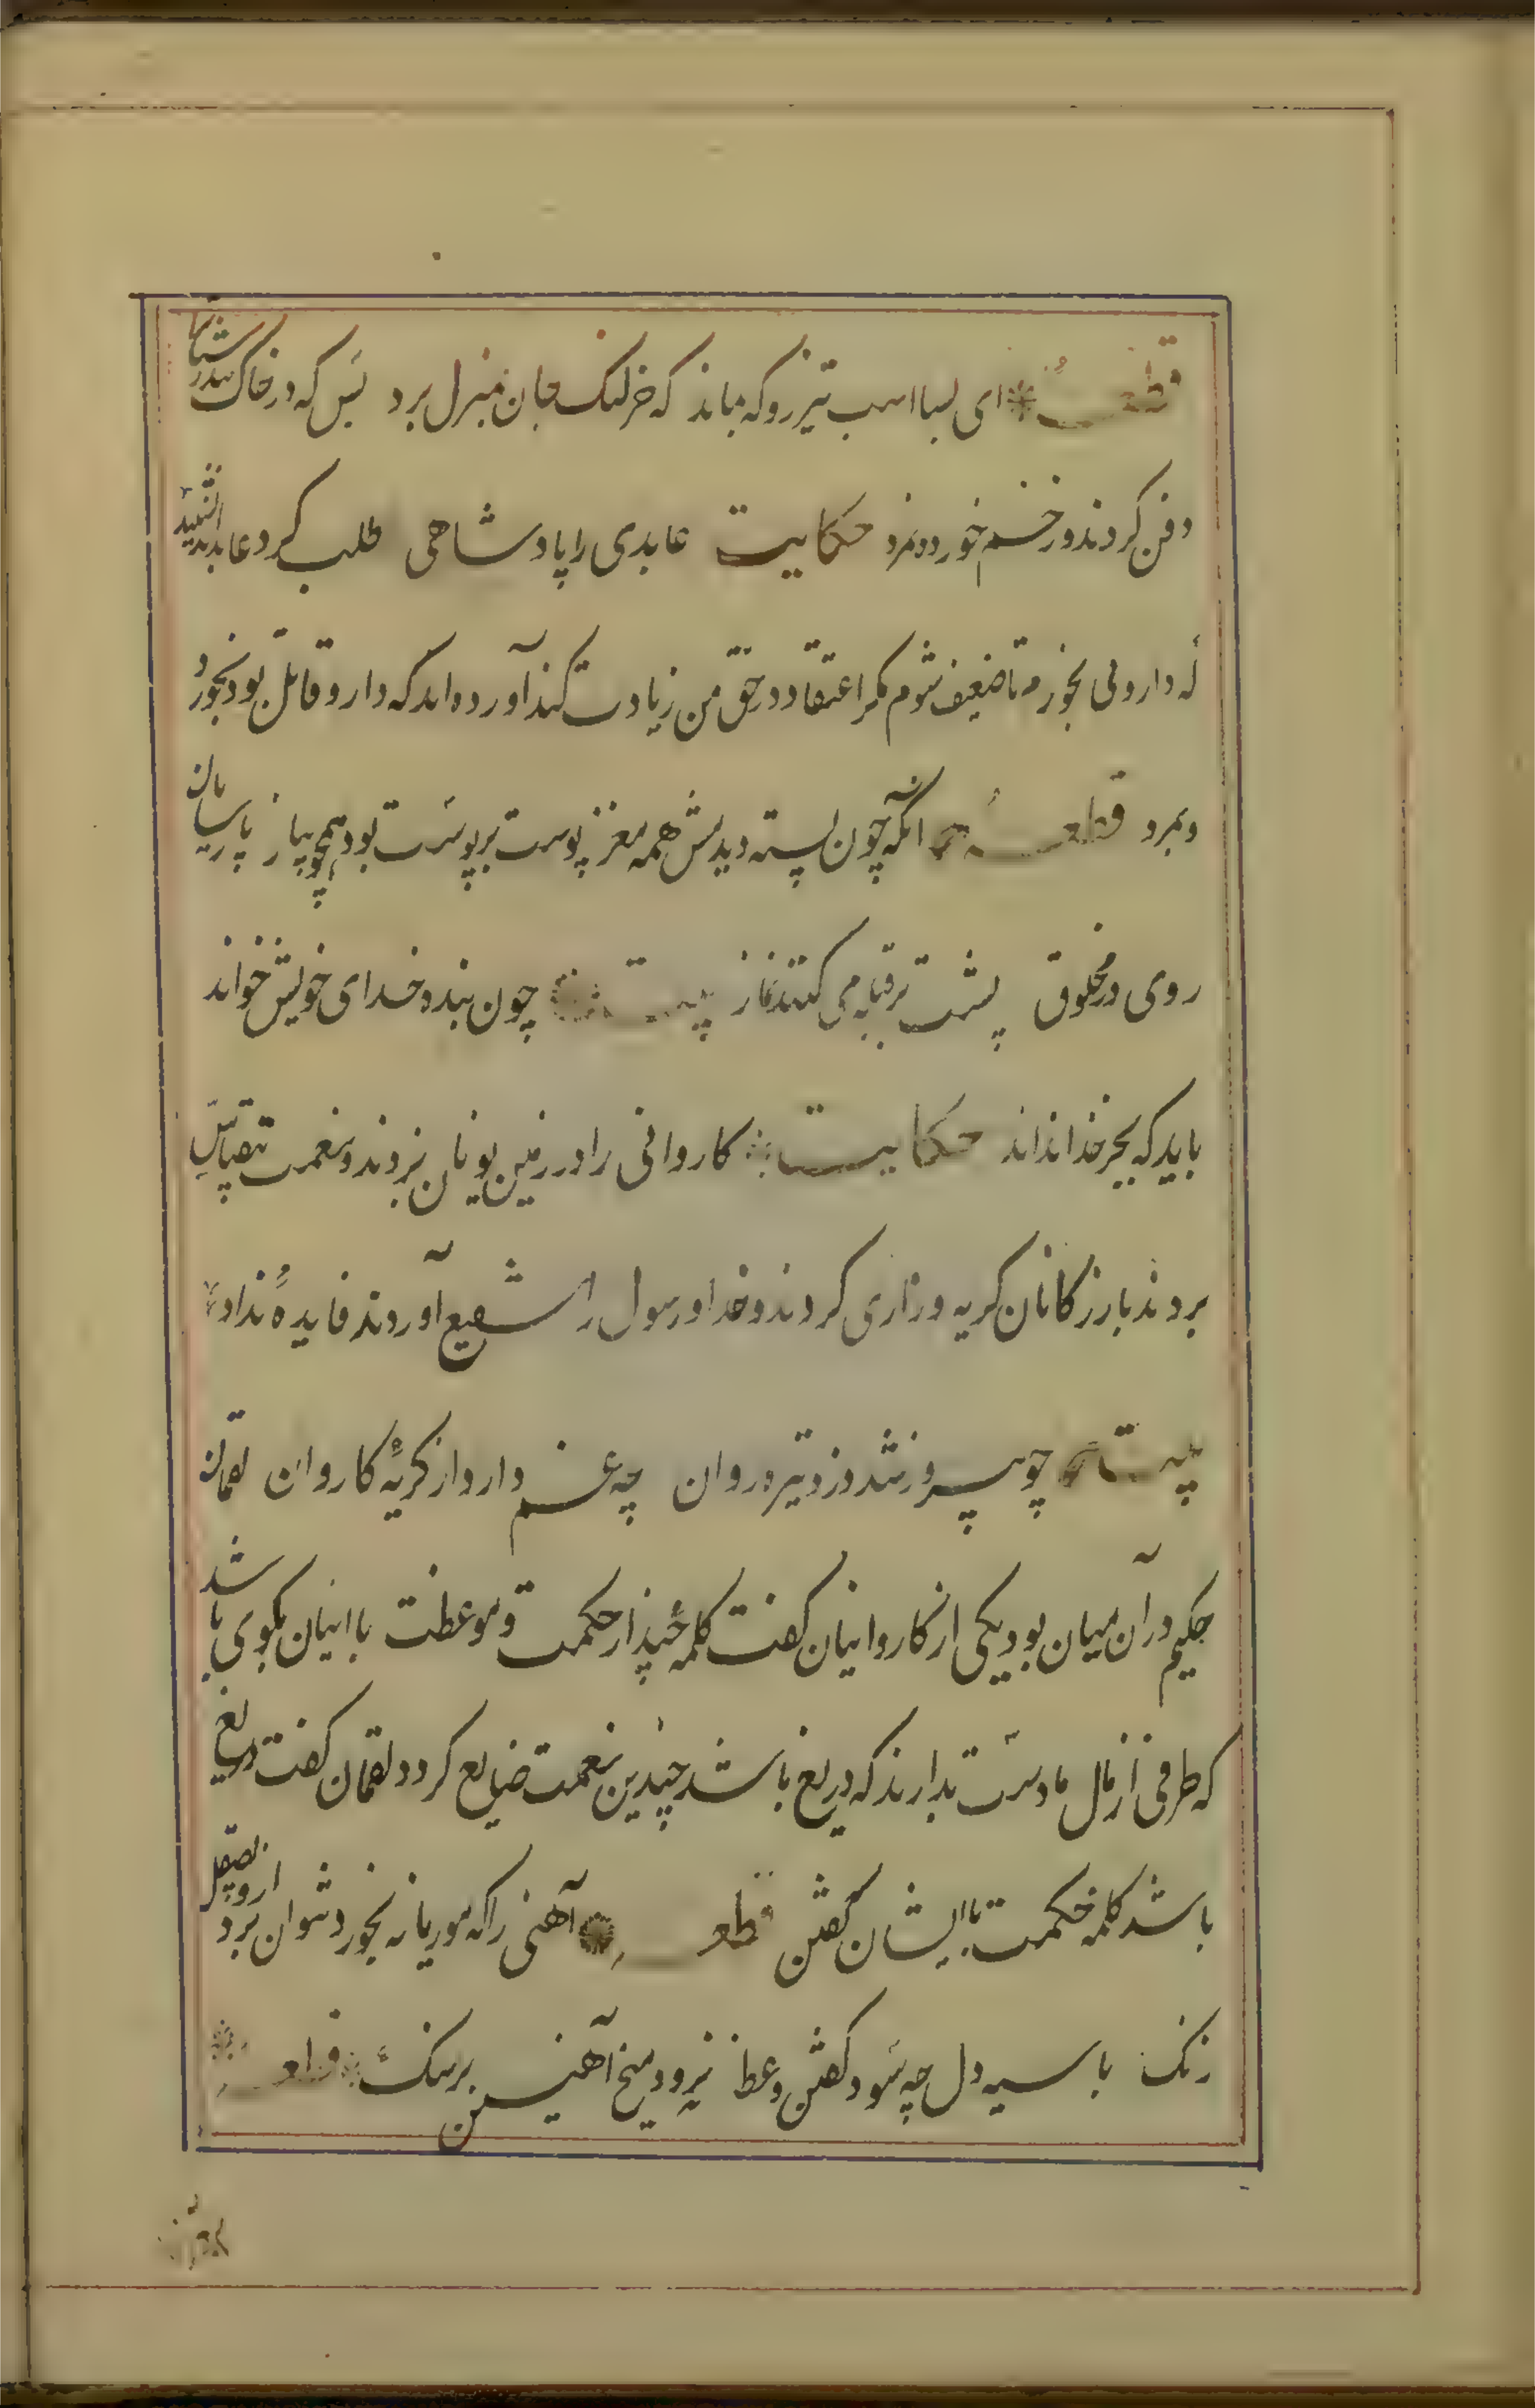 قطعه ای بسا اسب تیزرو که بماند که خر لنک جان بمنزل برد بس که در خاک تندرستانرا
دفن کردند و زخم خورده نمرد حکایت عابدی را پادشاهی طلب کرد عابد اندیشید
که داروئی بخورم تا ضعیف شوم مکر اعتقاد در حق من زیادت کند آورده اند که دارو قاتل بود بخورد
و بمرد قطعه آنکه چون پسته دیدمش همه مغز پوست بر پوست بود همچو پیاز پارسایان
روی در مخلوق پشت بر قبله می کنند نماز بیت چون بنده خدای خویش خواند
باید که بجز خدا نداند حکایت کاروانی را در زمین یونان بزدند و نعمت بیقیاس
بردند بازرکانان کریه و زاری کردند و خدا و رسول را شفیع آوردند فایدهٔ نداد
بیت چو پیروز شد دزد تیره روان چه غم دارد از کریهٔ کاروان لقمان
حکیم در آن میان بود یکی از کاروانیان کفت کلمهٔ چند از حکمت و موعظت با اینان بکوی باشد
که طرفی از مال ما دست بدارند که دریغ باشد چندین نعمت ضایع کردد لقمان کفت دریغ
باشد کلمه حکمت با ایشان کفتن قطعه آهنی را که موریانه بخورد نتوان برد ازو بصیقل
زنک با سیه دل چه سود کفتن وعظ نرود میخ آهنین بر سنک قطعه